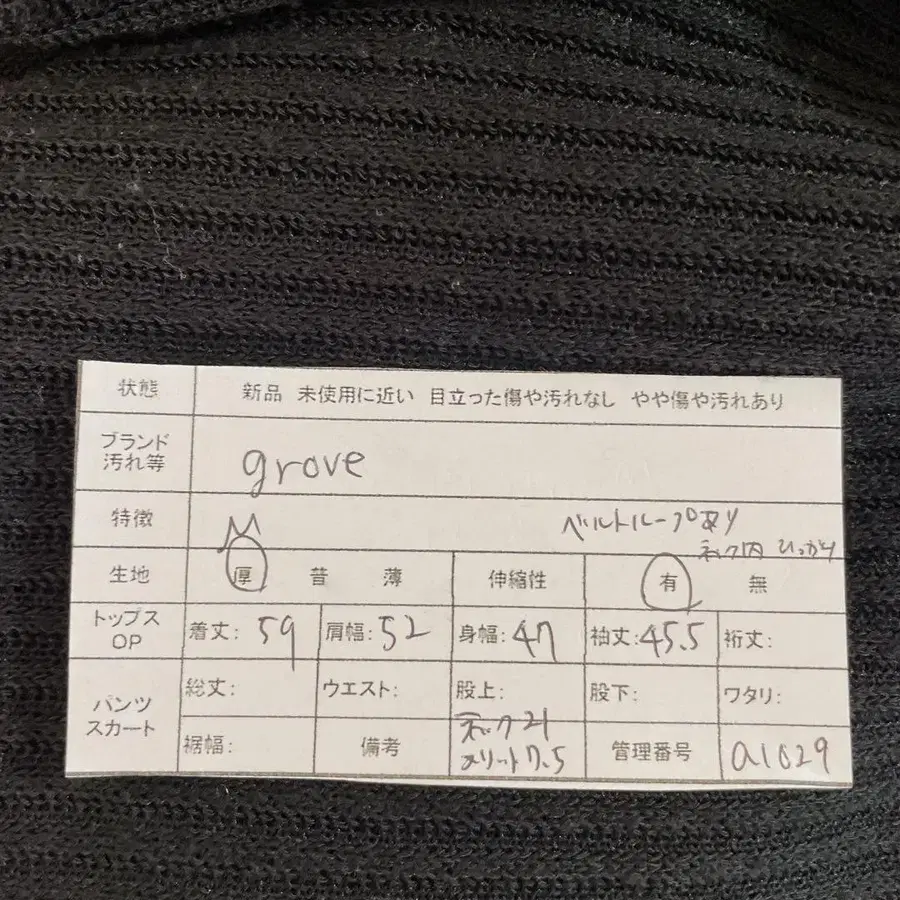 状態 新品 未使用に近い 目立った傷や汚れなし やや傷や汚れあり
ブランド
汚れ等 grove
特徴 M ベルトループあり
ネック内 ひっかけ
生地 厚 昔 薄 伸縮性 有 無
トップス
OP 着丈: 59 肩幅: 52 身幅: 47 袖丈: 45.5 裄丈:
パンツ
スカート 総丈: ウエスト: 股上: 股下: ワタリ:
裾幅: 備考 ネック21
スリット7.5 管理番号 a1029